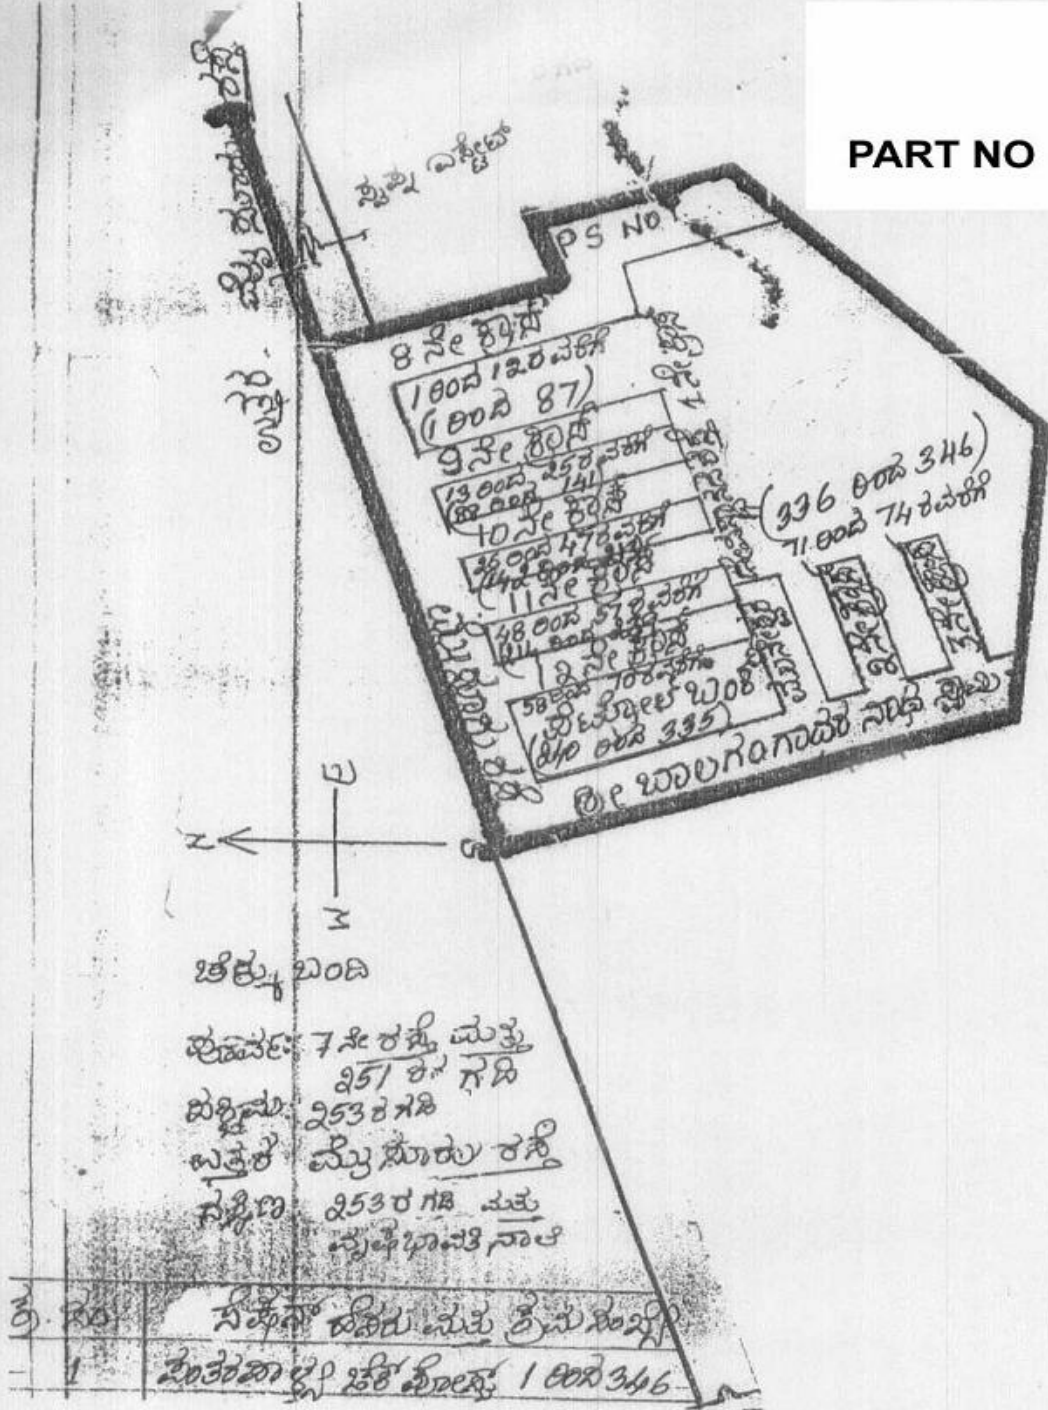 PART NO
ಸ್ವಪ್ನ ಎಸ್ಟೇಟ್
PS NO
ಮೈಸೂರು ರಸ್ತೆ
ಉತ್ತರ
8 ನೇ ಕ್ರಾಸ್
1 ರಿಂದ 12ರ ವರೆಗೆ
(1 ರಿಂದ 87)
9 ನೇ ಕ್ರಾಸ್
13 ರಿಂದ 25ರ ವರೆಗೆ
(88 ರಿಂದ 141)
10 ನೇ ಕ್ರಾಸ್
26 ರಿಂದ 47ರ ವರೆಗೆ
11 ನೇ ಕ್ರಾಸ್
48 ರಿಂದ 57 ರ ವರೆಗೆ
12 ನೇ ಕ್ರಾಸ್
58 ರಿಂದ 70ರ ವರೆಗೆ
ಪೆಟ್ರೋಲ್ ಬಂಕ್
(310 ರಿಂದ 335)
(336 ರಿಂದ 346)
71 ರಿಂದ 74 ರವರೆಗೆ
1 ನೇ ಕ್ರಾಸ್
2 ನೇ ಕ್ರಾಸ್
3 ನೇ ಕ್ರಾಸ್
ಮೈಸೂರು ರಸ್ತೆ
ಶ್ರೀ ಬಾಲಗಂಗಾಧರ ನಾಥ ಸ್ವಾಮಿ
E
N
S
W
ಚೆಕ್ಕು ಬಂದಿ
ಪೂರ್ವ: 7 ನೇ ರಸ್ತೆ ಮತ್ತು
251 ರ ಗಡಿ
ಪಶ್ಚಿಮ: 253 ರ ಗಡಿ
ಉತ್ತರ ಮೈಸೂರು ರಸ್ತೆ
ದಕ್ಷಿಣ 253 ರ ಗಡಿ ಮತ್ತು
ವೃಷಭಾವತಿ ನಾಲೆ
ಕ್ರ. ಸಂ. ಸೆಕ್ಷನ್ ಹೆಸರು ಮತ್ತು ಕ್ರಮ ಸಂಖ್ಯೆ
1 ಪಂತರಪಾಳ್ಯ ಚೆಕ್ ಪೋಸ್ಟ್ 1 ರಿಂದ 346